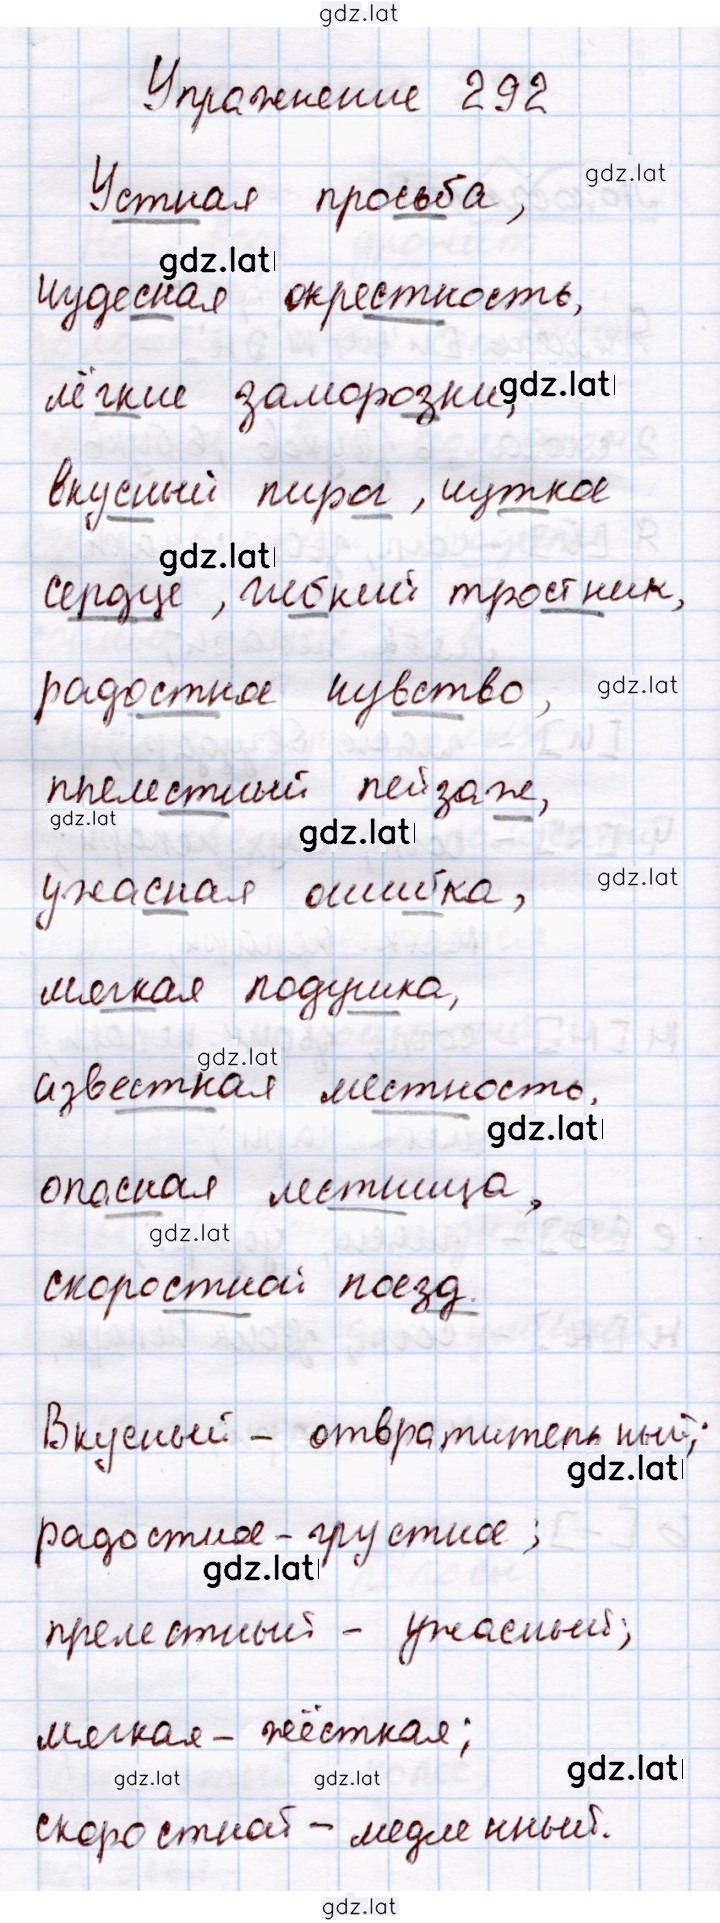 gdz.lat
Упражнение 292
Устная просьба,
gdz.lat
gdz.lat
чудесная окрестность,
лёгкие заморозки,
gdz.lat
вкусный пирог, чуткое
gdz.lat
сердце, гибкий тростник,
радостное чувство,
gdz.lat
прелестный пейзаж,
gdz.lat
gdz.lat
ужасная ошибка,
gdz.lat
мягкая подушка,
gdz.lat
известная местность,
gdz.lat
опасная лестница,
gdz.lat
скоростной поезд.
Вкусный – отвратительный;
gdz.lat
радостное – грустное;
gdz.lat
прелестный – ужасный;
мягкая – жёсткая;
gdz.lat
gdz.lat
gdz.lat
скоростной – медленный.
gdz.lat